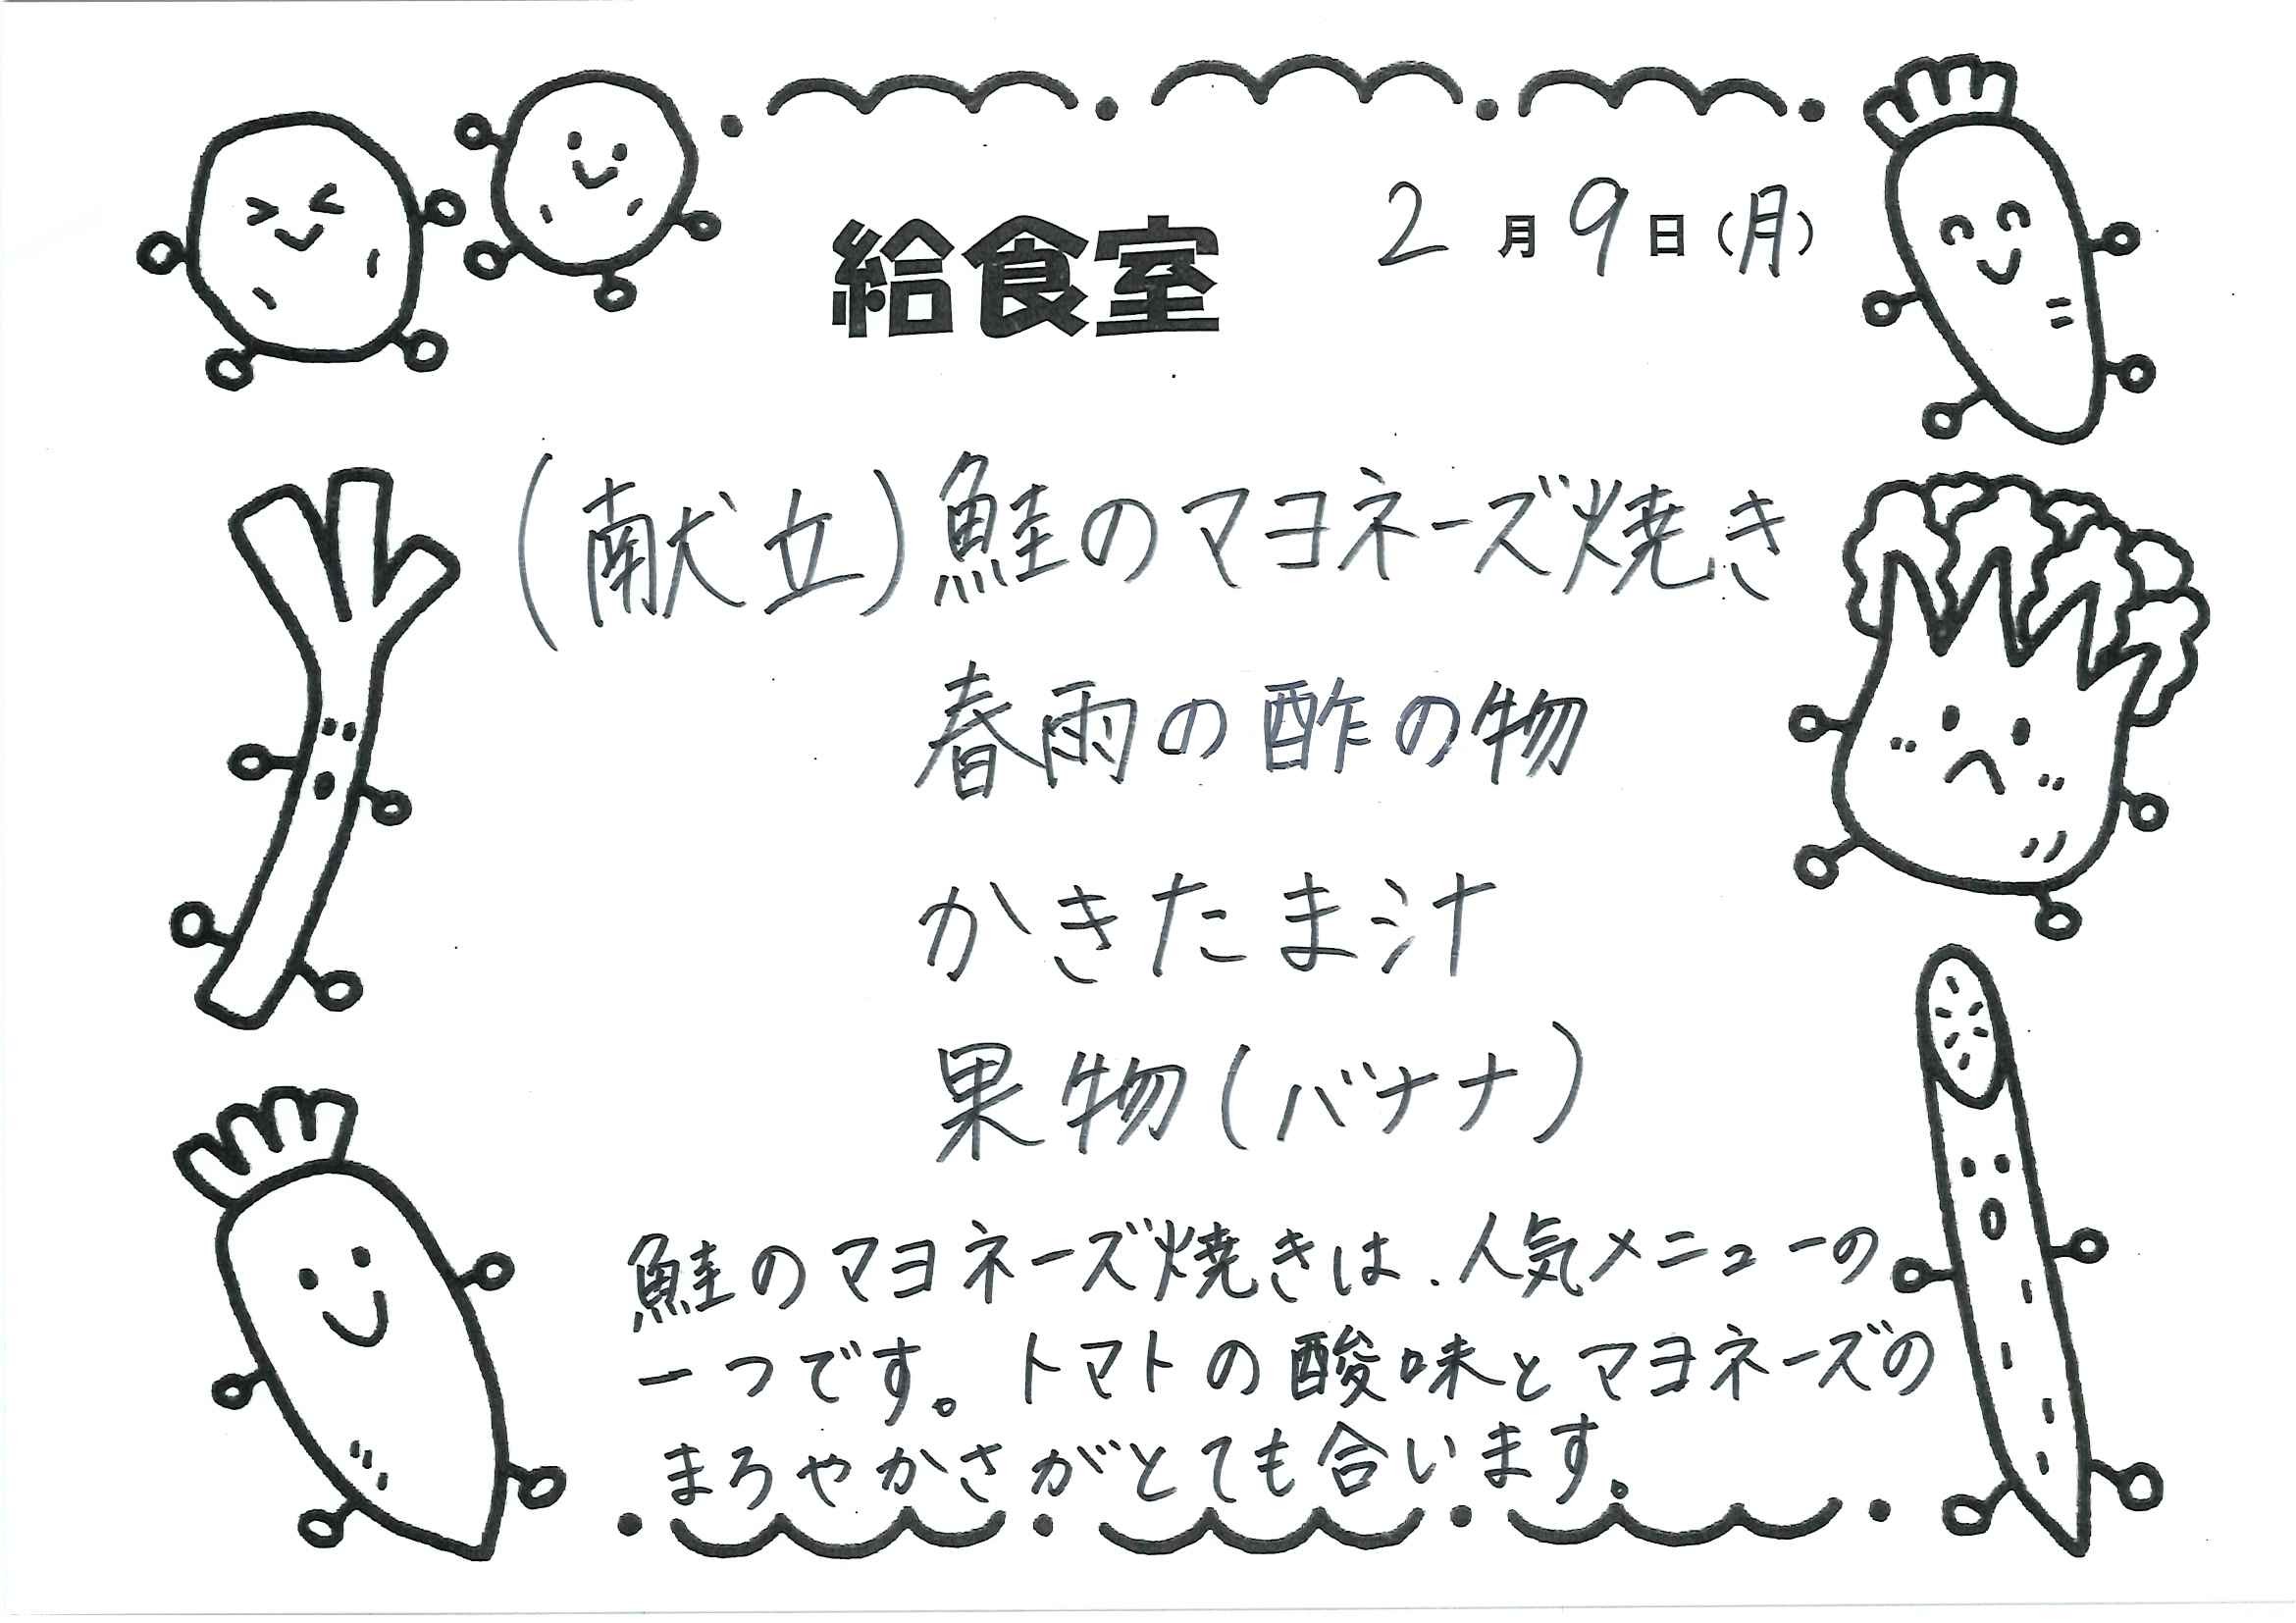 給食室 2月9日(月)
(献立)鮭のマヨネーズ焼き
春雨の酢の物
かきたま汁
果物(バナナ)
鮭のマヨネーズ焼きは、人気メニューの
一つです。トマトの酸味とマヨネーズの
まろやかさがとても合います。